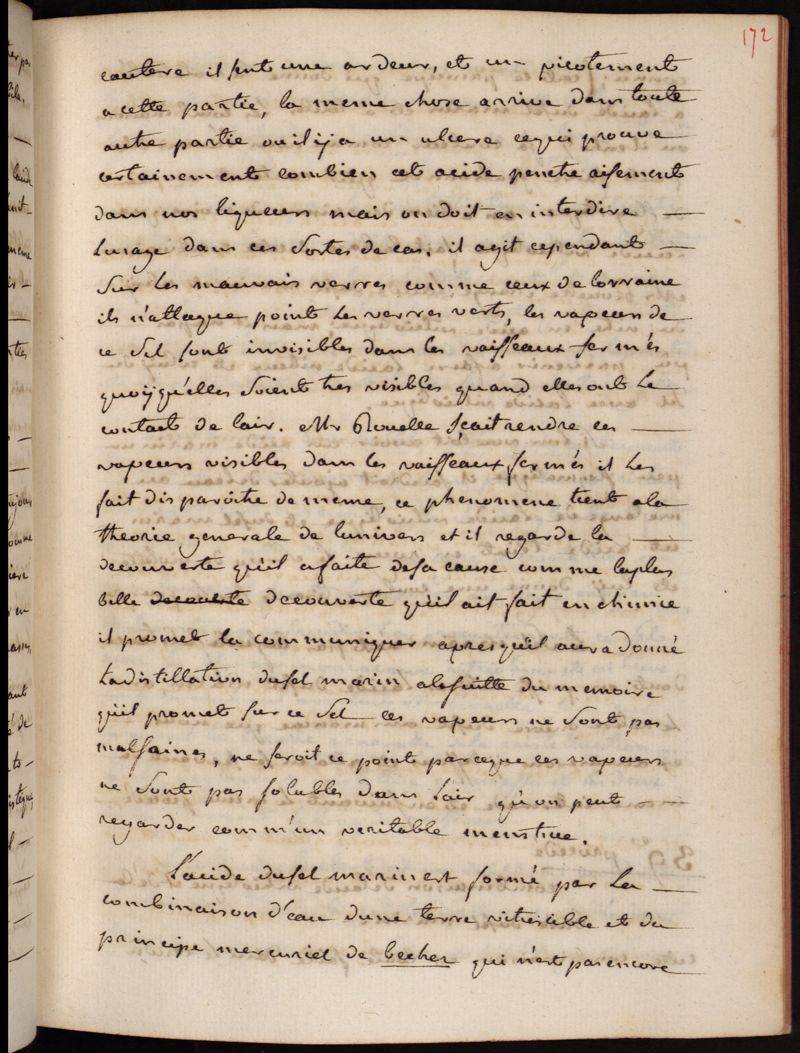 172
cautere il sent une ardeur, et un picotement
a cette partie, la meme chose arrive dans toute
autre partie ou il y a un ulcere ce qui prouve
certainement combien cet acide penetre aisement
dans nos liqueurs mais on doit en interdire
lusage dans ces sortes de cas. il agit cependant
sur les mauvais verres comme ceux de lorraine
ils n'attaque point les verres verts, les vapeurs de
ce sel sont invisibles dans les vaisseaux fermés
quoÿqu'elles soient tres visibles quand elles ont le
contact de lair. Mr Rouelle sçait rendre ces
vapeurs visibles dans les vaisseaux fermés il les
fait disparoitre de meme, ce phenomene tient a la
theorie generale de lunivers et il regarde la
decouverte qu'il a faite de sa cause comme la plus
belle decouverte decouverte qu'il ait fait en chimie
il promet la communiquer apres qu'il aura donné
la distillation du sel marin a la suitte du memoire
qu'il promet sur ce sel ces vapeurs ne sont pas
malsaines, ne seroit ce point parceque ces vapeurs
ne sont pas solubles dans l'air qu'on peut
regarder comm'un veritable menstrue.
L'acide du sel marin est formé par la
combinaison d'eau dune terre vitresible et du
principe mercuriel de becher qui n'est pas encore